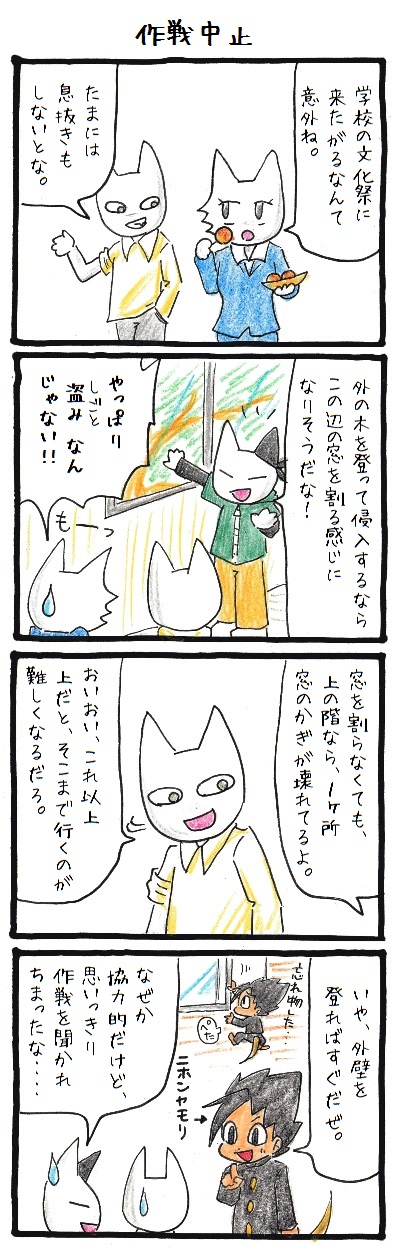 作戦中止
学校の文化祭に
来たがるなんて
意外ね。
たまには
息抜きも
しないとな。
外の木を登って侵入するなら
この辺の窓を割る感じに
なりそうだな!
やっぱり
しごと
盗みなん
じゃない!!
もーっ
窓を割らなくても、
上の階なら、1ヶ所
窓のかぎが壊れてるよ。
おいおい、これ以上
上だと、そこまで行くのが
難しくなるだろ。
いや、外壁を
登ればすぐだぜ。
忘れ物した…
ぺた
ニホンヤモリ
なぜか
協力的だけど、
思いっきり
作戦を聞かれ
ちまったな・・・・